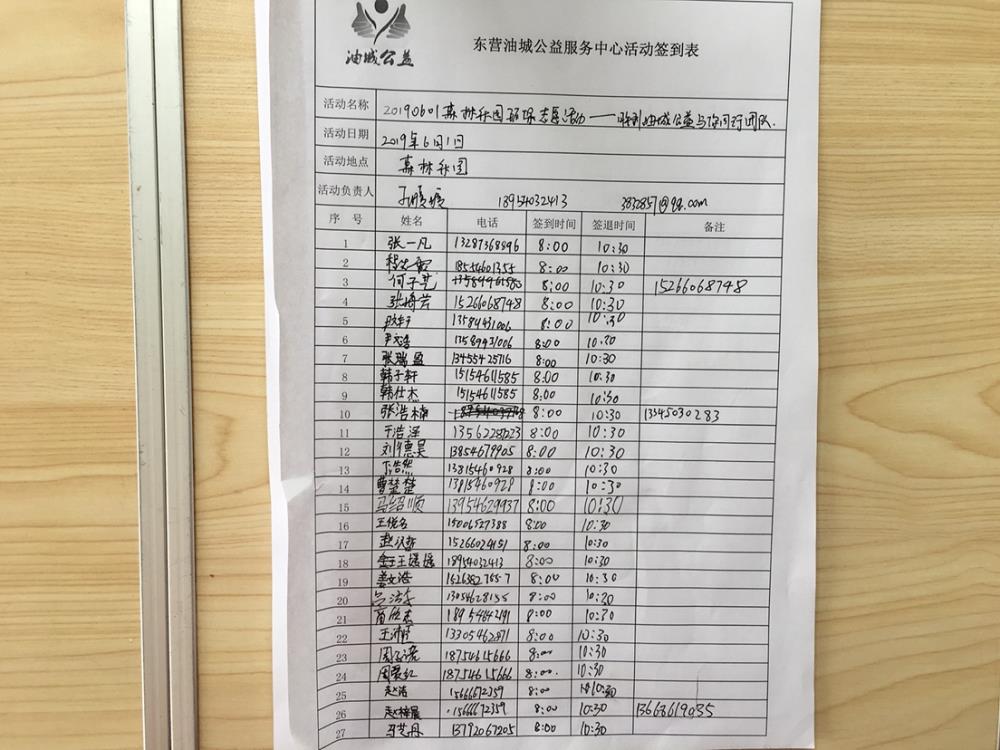 油城公益
东营油城公益服务中心活动签到表
活动名称 20190601森林公园环保志愿活动——胜利油城公益与你同行团队.
活动日期 2019年6月1日
活动地点 森林公园
活动负责人 18954032413 38328571@qq.com
序 号 姓名 电话 签到时间 签退时间 备注
1 张一凡 13287368896 8:00 10:30
2 18554601355 8:00 10:30
3 何子艺 8:00 10:30 15266068748
4 张博芸 15266068748 8:00 10:30
5 8:00 10:30
6 8:00 10:30
7 张瑞盈 13455425716 8:00 10:30
8 韩子轩 15154611585 8:00 10:30
9 韩仕杰 15154611585 8:00 10:30
10 张浩楠 8:00 10:30 13345030283
11 于浩泽 8:00 10:30
12 刘德昊 13854679905 8:00 10:30
13 卞浩然 13815460928 8:00 10:30
14 曹楚楚 8:00 10:30
15 马绍顺 13954629937 8:00 10:30
16 王悦名 15006527388 8:00 10:30
17 15266024151 8:00 10:30
18 王瑶瑶 18954032413 8:00 10:30
19 姜文浩 8:00 10:30
20 13054628155 8:00 10:30
21 8:00 10:30
22 13305462871 8:00 10:30
23 18754615666 8:00 10:30
24 周爱红 18754615666 8:00 10:30
25 赵浩 15666672359 8:00 10:30
26 赵梓晨 15666672359 8:00 10:30 13663619035
27 马艺丹 13792067205 8:00 10:30